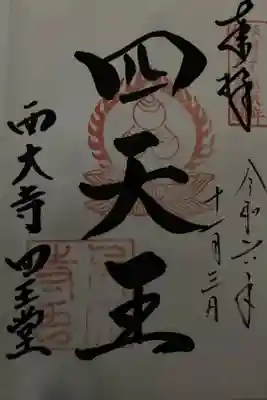 奉拝
令和六年
十一月三日
四天王
西大寺 四王堂